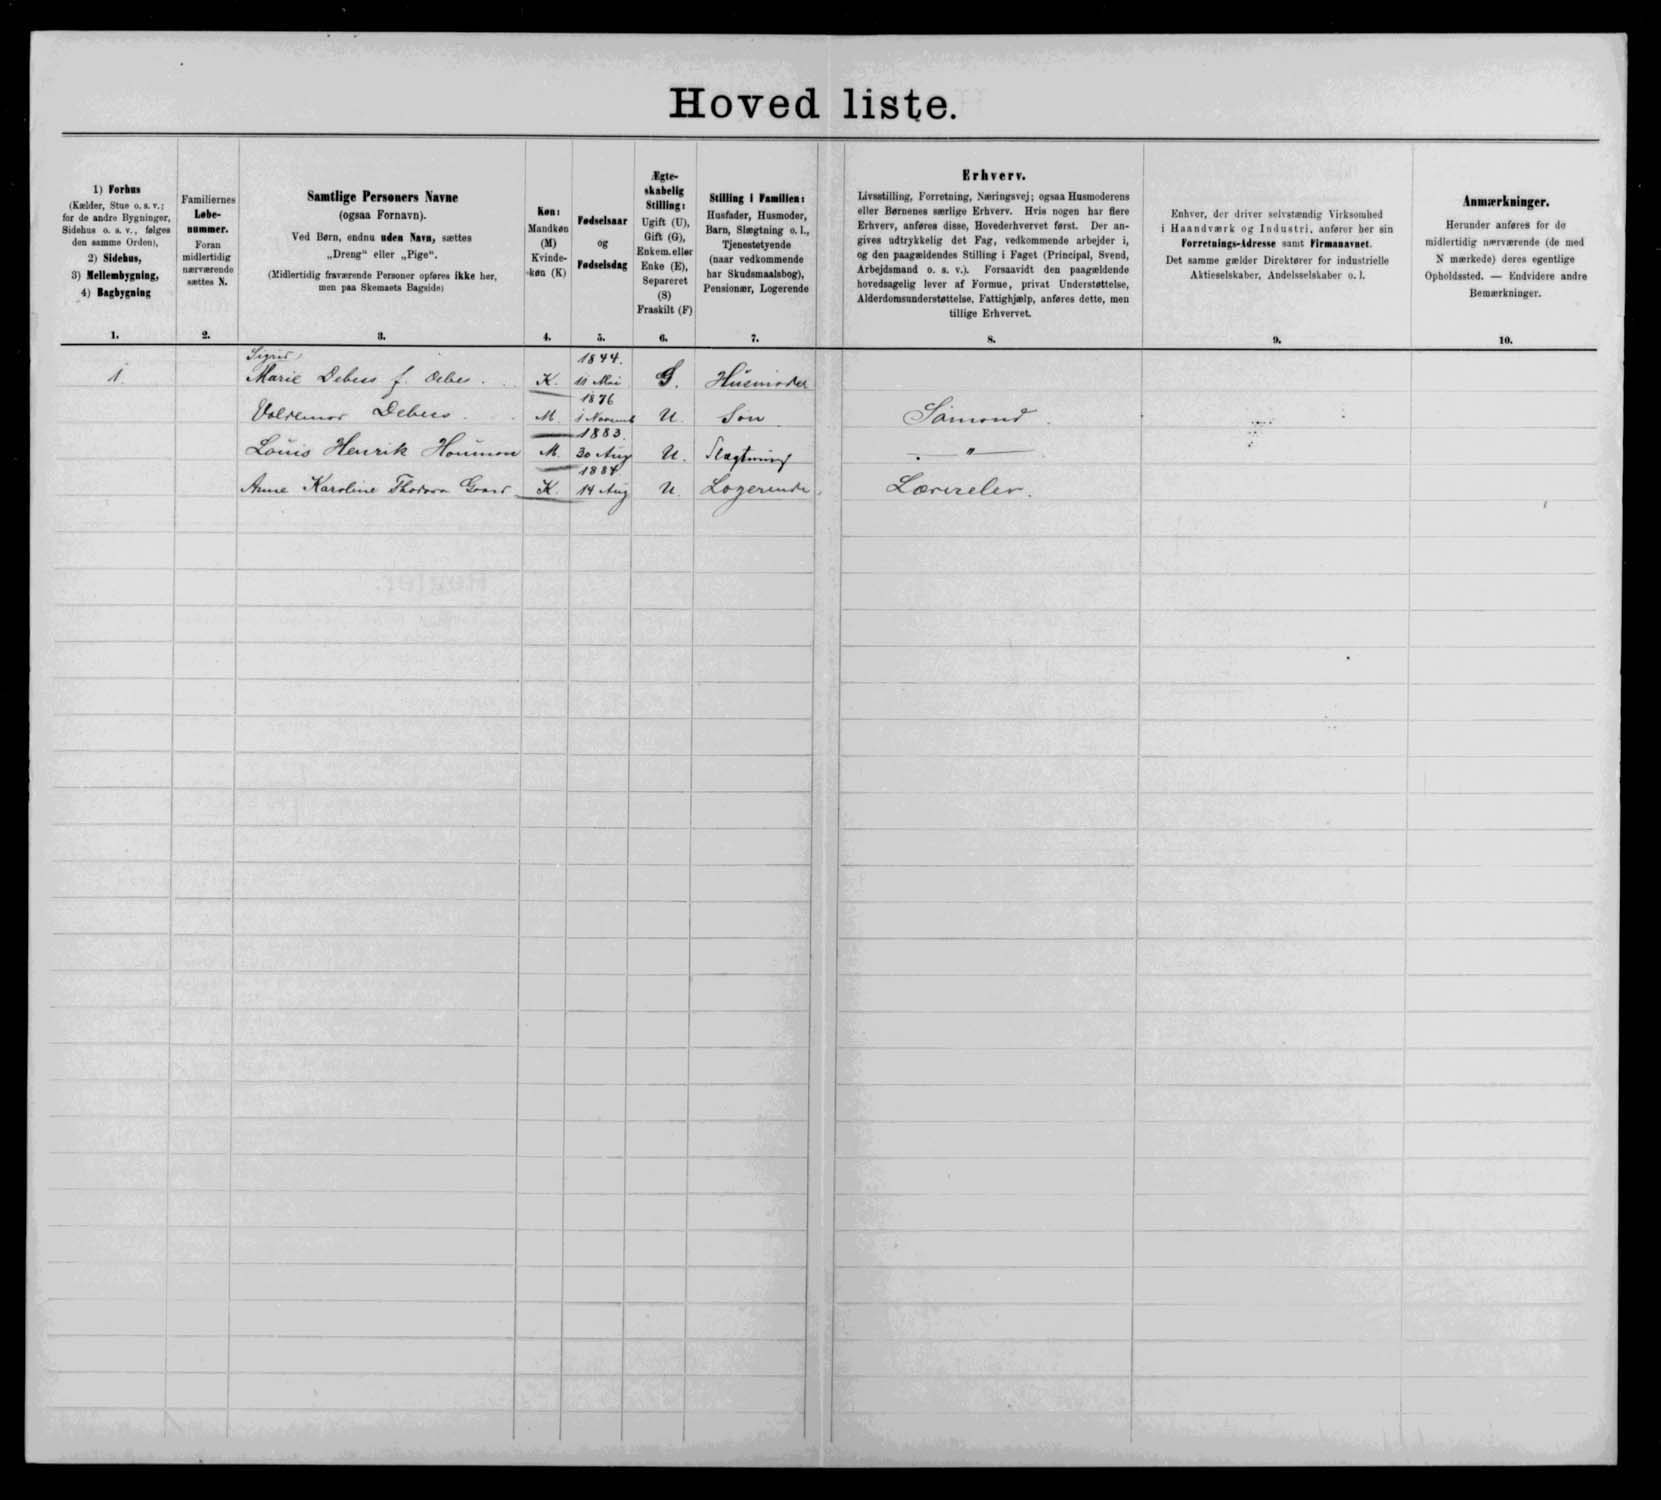 Hoved liste.
1) Forhus
(Kælder, Stue o. s. v.;
for de andre Bygninger,
Sidehus o. s. v., følges
den samme Orden),
2) Sidehus,
3) Mellembygning,
4) Bagbygning
1.
Familiernes
Løbe-
nummer.
Foran
midlertidig
nærværende
sættes N.
2.
Samtlige Personers Navne
(ogsaa Fornavn).
Ved Børn, endnu uden Navn, sættes
„Dreng" eller „Pige".
(Midlertidig fraværende Personer opføres ikke her,
men paa Skemaets Bagside)
3.
Køn:
Mandkøn
(M)
Kvinde-
køn (K)
4.
Fødselsaar
og
Fødselsdag
5.
Ægte-
skabelig
Stilling:
Ugift (U),
Gift (G),
Enkem. eller
Enke (E),
Separeret
(S)
Fraskilt (F)
6.
Stilling i Familien:
Husfader, Husmoder,
Barn, Slægtning o. l.,
Tjenestetyende
(naar vedkommende
har Skudsmaalsbog),
Pensionær, Logerende
7.
Erhverv.
Livsstilling, Forretning, Næringsvej; ogsaa Husmoderens
eller Børnenes særlige Erhverv. Hvis nogen har flere
Erhverv, anføres disse, Hovederhvervet først. Der an-
gives udtrykkelig det Fag, vedkommende arbejder i,
og den paagældendes Stilling i Faget (Principal, Svend,
Arbejdsmand o. s. v.). Forsaavidt den paagældende
hovedsagelig lever af Formue, privat Understøttelse,
Alderdomsunderstøttelse, Fattighjælp, anføres dette, men
tillige Erhvervet.
8.
Enhver, der driver selvstændig Virksomhed
i Haandværk og Industri, anfører her sin
Forretnings-Adresse samt Firmanavnet.
Det samme gælder Direktører for industrielle
Aktieselskaber, Andelsselskaber o. l.
9.
Anmærkninger.
Herunder anføres for de
midlertidig nærværende (de med
N mærkede) deres egentlige
Opholdssted. — Endvidere andre
Bemærkninger.
10.
Sigrid 1844.
1. Marie Debes f. Debes K. 11 Mai G. Husmoder
1876
Valdemar Debes M. 1 Novemb U. Søn Sømand
1883.
Louis Henrik M. 30 Aug U. Slægtning "
1884
Anne Karoline K. 14 Aug U. Logerende Lærerelev.